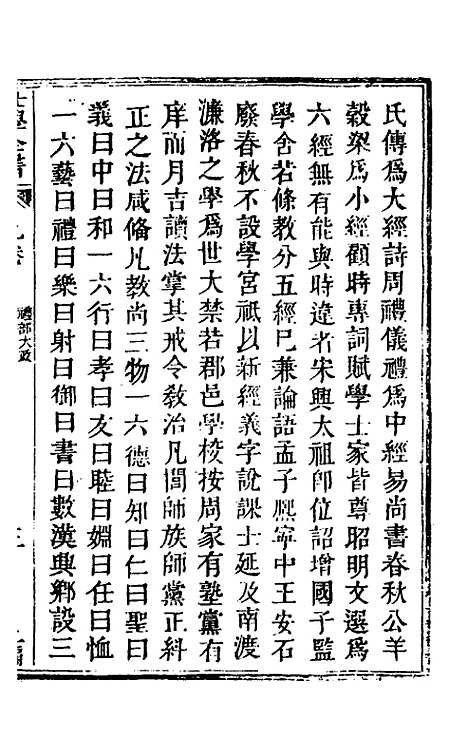 氏傳爲大經詩周禮儀禮爲中經易尚書春秋公羊
穀梁爲小經顧時專詞賦學士家皆尊昭明文選爲
六經無有能與時違者宋興太祖卽位詔增國子監
學舍若條教分五經巳兼論語孟子熙寧中王安石
廢春秋不設學宮祗以新經義字說課士延及南渡
濂洛之學爲世大禁若郡邑學校按周家有塾黨有
庠而月吉讀法掌其戒令敎治凡閭師族師黨正糾
正之法咸僃凡敎尚三物一六德曰知曰仁曰聖曰
義曰中曰和一六行曰孝曰友曰睦曰婣曰任曰恤
一六藝曰禮曰樂曰射曰御曰書曰數漢興鄉設三
禮部大政